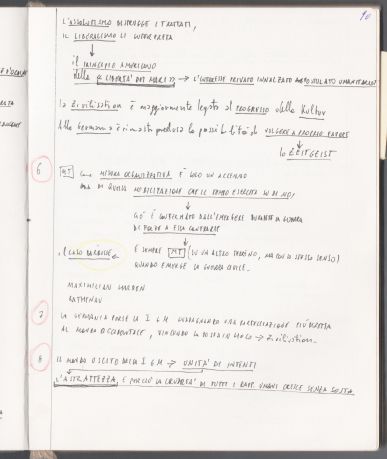 10
L'ASSOLUTISMO DISTRUGGE I TRATTATI,
IL LIBERALISMO LI INTERPRETA
↓
il PRINCIPIO AMERICANO
della "LIBERTÀ DEI MARI" → L'INTERESSE PRIVATO INNALZATO A POSTULATO UMANITARIO
la Zivilisation è maggiormente legata al PROGRESSO della Kultur
alla Germania è rimasta preclusa la possibilità di VOLGERE A PROPRIO FAVORE
lo ZEITGEIST
6
MT come MISURA ORGANIZZATIVA È SOLO UN ACCENNO
DI QUELLA MOBILITAZIONE CHE IL TEMPO ESERCITA SU DI NOI
CIÒ È CONFERMATO DALL'EMERGERE DURANTE LA GUERRA
DI FORZE A ESSA CONTRARIE
(CASO BARBUSSE
È SEMPRE MT (SU UN ALTRO TERRENO, MA CON LO STESSO SENSO)
QUANDO EMERGE LA GUERRA CIVILE.
MAXIMILIAN HARDEN
RATHENAU
7
LA GERMANIA PERSE LA I G.M. GUADAGNANDO UNA PARTECIPAZIONE PIÙ STRETTA
AL MONDO OCCIDENTALE, → Zivilisation.
8
IL MONDO USCITO DALLA I G.M → UNITÀ DI INTENTI
L'ASTRATTEZZA, E PERCIÒ LA CRUDELTÀ DI TUTTI I RAPP. UMANI CRESCE SENZA SOSTA